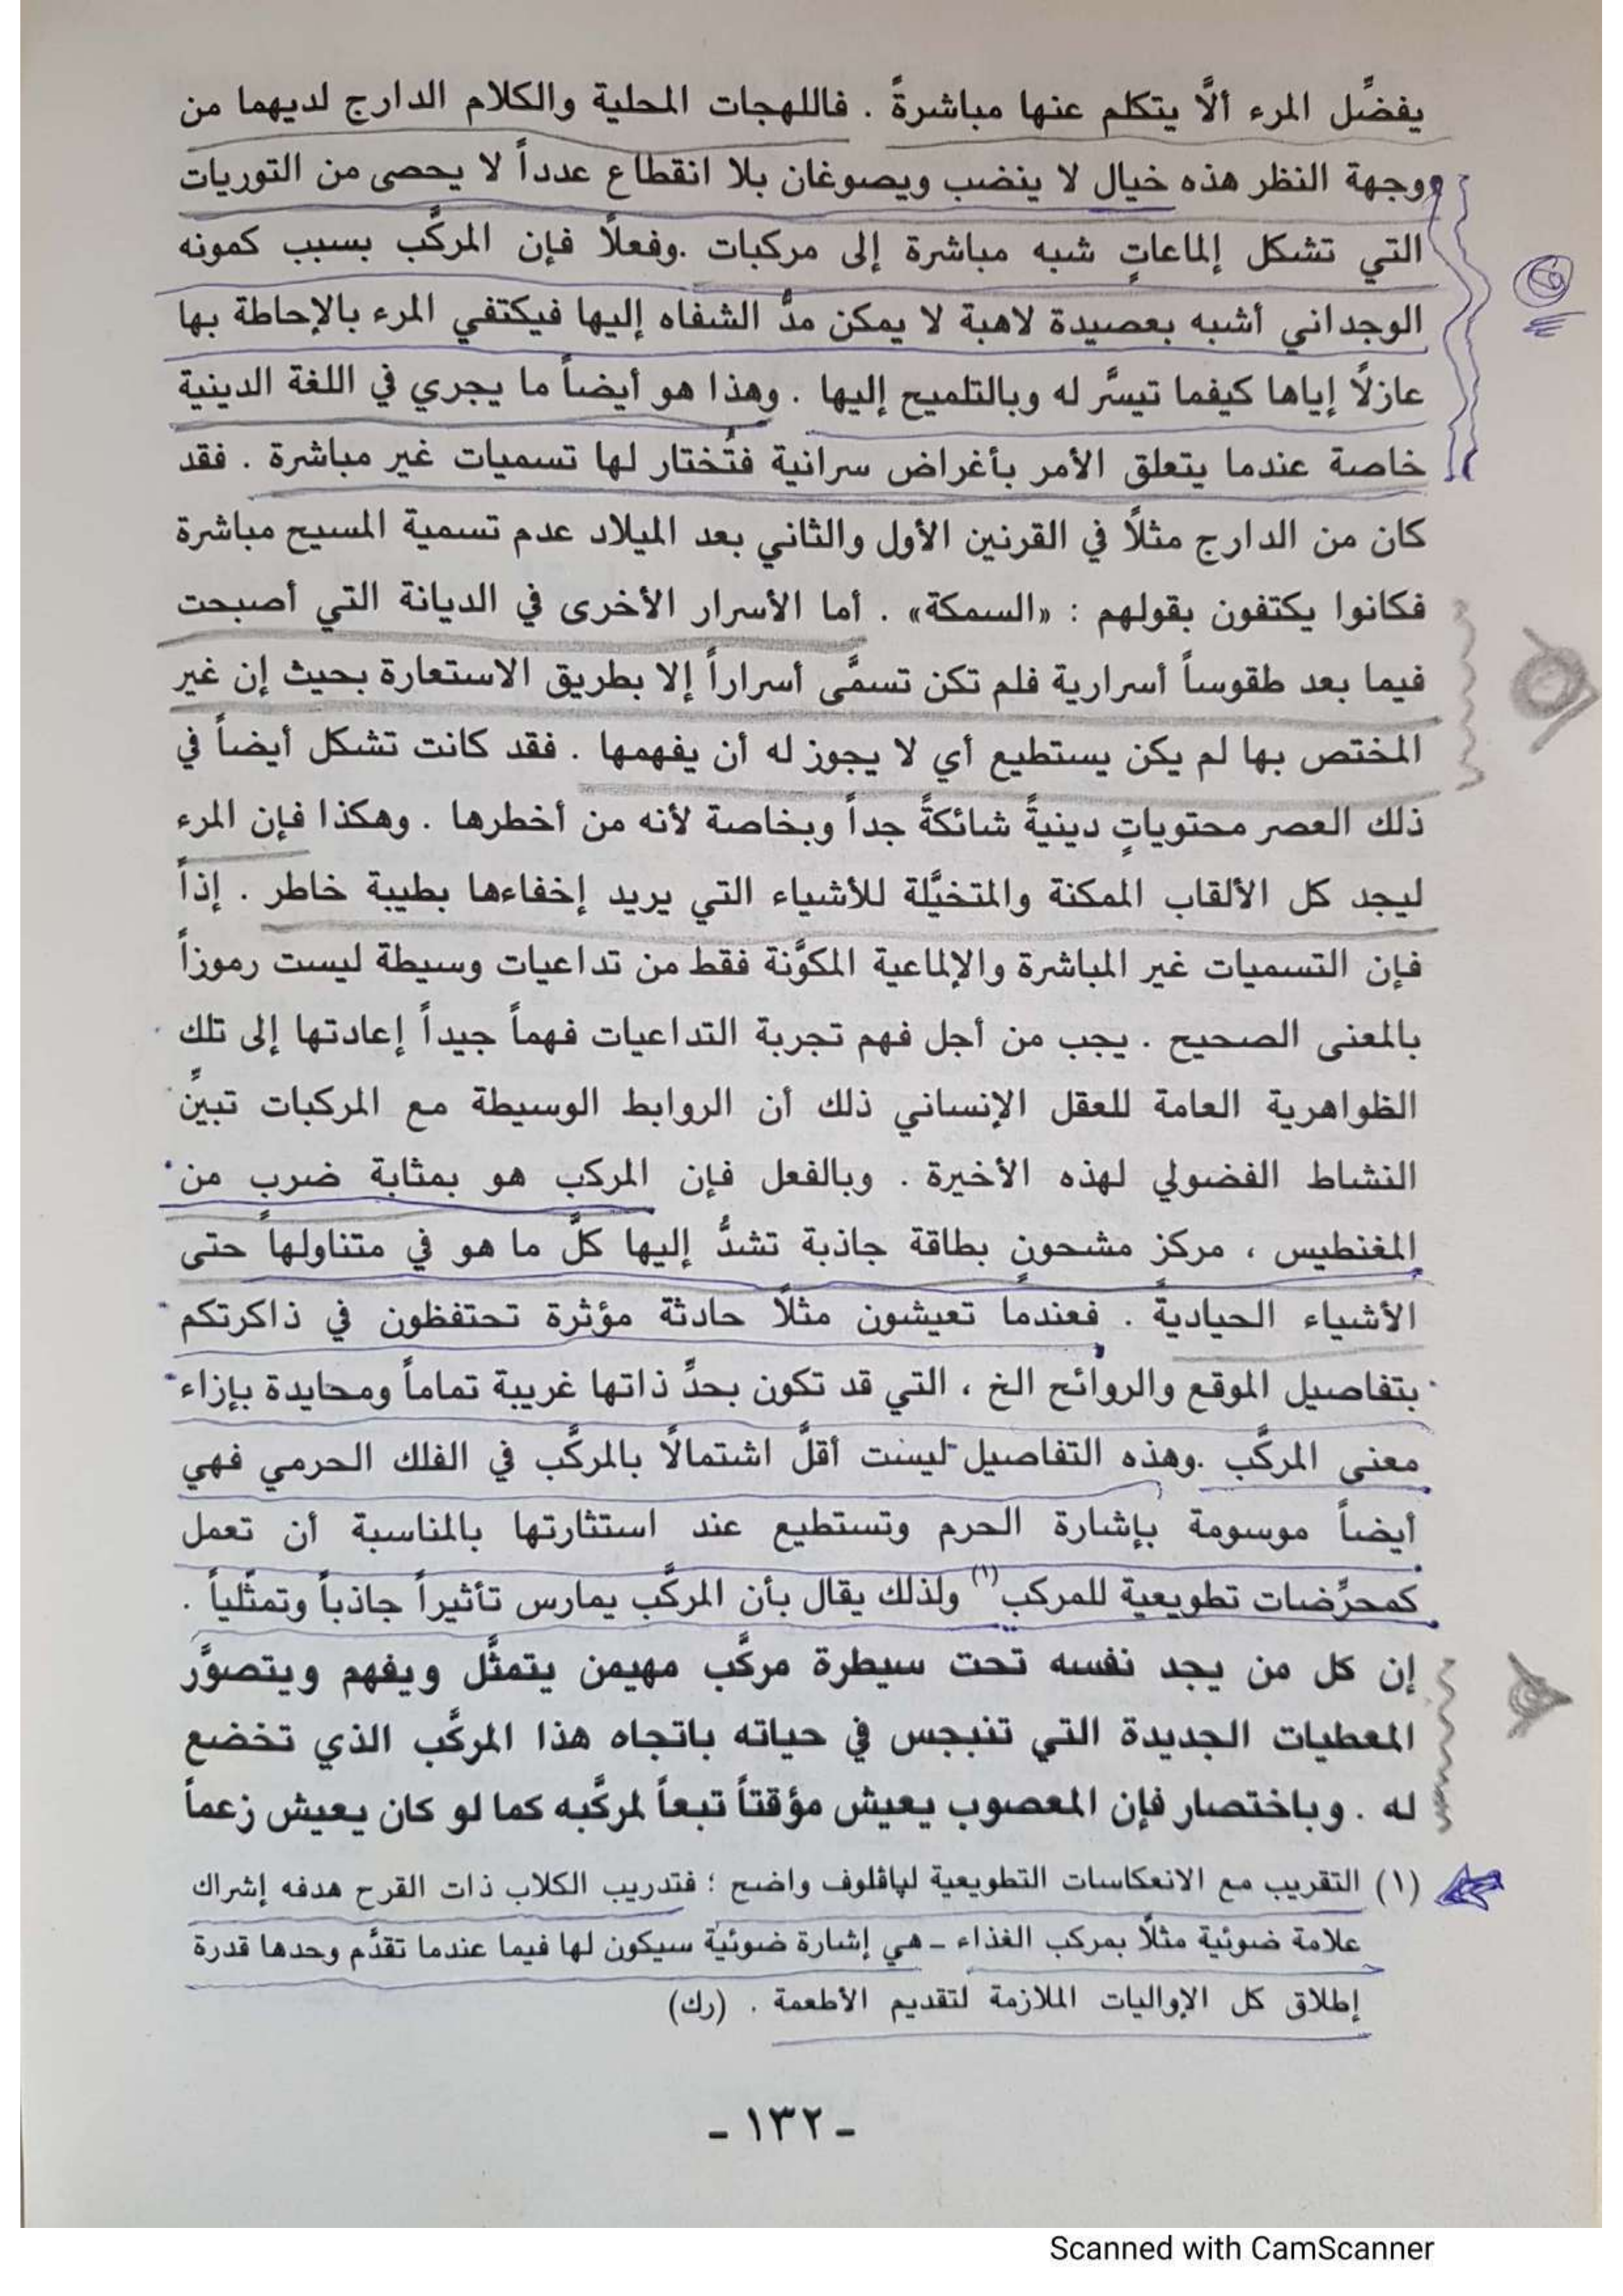 يفضِّل المرء ألاَّ يتكلم عنها مباشرةً . فاللهجات المحلية والكلام الدارج لديهما من
وجهة النظر هذه خيال لا ينضب ويصوغان بلا انقطاع عدداً لا يحصى من التوريات
التي تشكل إلماعاتٍ شبه مباشرة إلى مركبات .وفعلاً فإن المركَّب بسبب كمونه
الوجداني أشبه بعصيدة لاهبة لا يمكن مدُّ الشفاه إليها فيكتفي المرء بالإحاطة بها
عازلاً إياها كيفما تيسَّر له وبالتلميح إليها . وهذا هو أيضاً ما يجري في اللغة الدينية
خاصة عندما يتعلق الأمر بأغراض سرانية فتُختار لها تسميات غير مباشرة . فقد
كان من الدارج مثلاً في القرنين الأول والثاني بعد الميلاد عدم تسمية المسيح مباشرة
فكانوا يكتفون بقولهم : «السمكة» . أما الأسرار الأخرى في الديانة التي أصبحت
فيما بعد طقوساً أسرارية فلم تكن تسمَّى أسراراً إلا بطريق الاستعارة بحيث إن غير
المختص بها لم يكن يستطيع أي لا يجوز له أن يفهمها . فقد كانت تشكل أيضاً في
ذلك العصر محتوياتٍ دينيةً شائكةً جداً وبخاصة لأنه من أخطرها . وهكذا فإن المرء
ليجد كل الألقاب الممكنة والمتخيَّلة للأشياء التي يريد إخفاءها بطيبة خاطر . إذاً
فإن التسميات غير المباشرة والإلماعية المكوَّنة فقط من تداعيات وسيطة ليست رموزاً
بالمعنى الصحيح . يجب من أجل فهم تجربة التداعيات فهماً جيداً إعادتها إلى تلك
الظواهرية العامة للعقل الإنساني ذلك أن الروابط الوسيطة مع المركبات تبينِّ
النشاط الفضولي لهذه الأخيرة . وبالفعل فإن المركب هو بمثابة ضرب من
المغنطيس ، مركز مشحونٍ بطاقة جاذبة تشدُّ إليها كلَّ ما هو في متناولها حتى
الأشياء الحيادية . فعندما تعيشون مثلاً حادثة مؤثرة تحتفظون في ذاكرتكم
بتفاصيل الموقع والروائح الخ ، التي قد تكون بحدِّ ذاتها غريبة تماماً ومحايدة بإزاء
معنى المركَّب .وهذه التفاصيل ليست أقلَّ اشتمالاً بالمركَّب في الفلك الحرمي فهي
أيضاً موسومة بإشارة الحرم وتستطيع عند استثارتها بالمناسبة أن تعمل
كمحرِّضات تطويعية للمركب(١) ولذلك يقال بأن المركَّب يمارس تأثيراً جاذباً وتمثّلياً .
إن كل من يجد نفسه تحت سيطرة مركَّب مهيمن يتمثَّل ويفهم ويتصوَّر
المعطيات الجديدة التي تنبجس في حياته باتجاه هذا المركَّب الذي تخضع
له . وباختصار فإن المعصوب يعيش مؤقتاً تبعاً لمركَّبه كما لو كان يعيش زعماً
(١) التقريب مع الانعكاسات التطويعية لپاڤلوف واضح ؛ فتدريب الكلاب ذات القرح هدفه إشراك
علامة ضوئية مثلاً بمركب الغذاء ـ هي إشارة ضوئية سيكون لها فيما عندما تقدَّم وحدها قدرة
إطلاق كل الإواليات الملازمة لتقديم الأطعمة . (رك)
ـ ١٣٢ ـ
Scanned with CamScanner